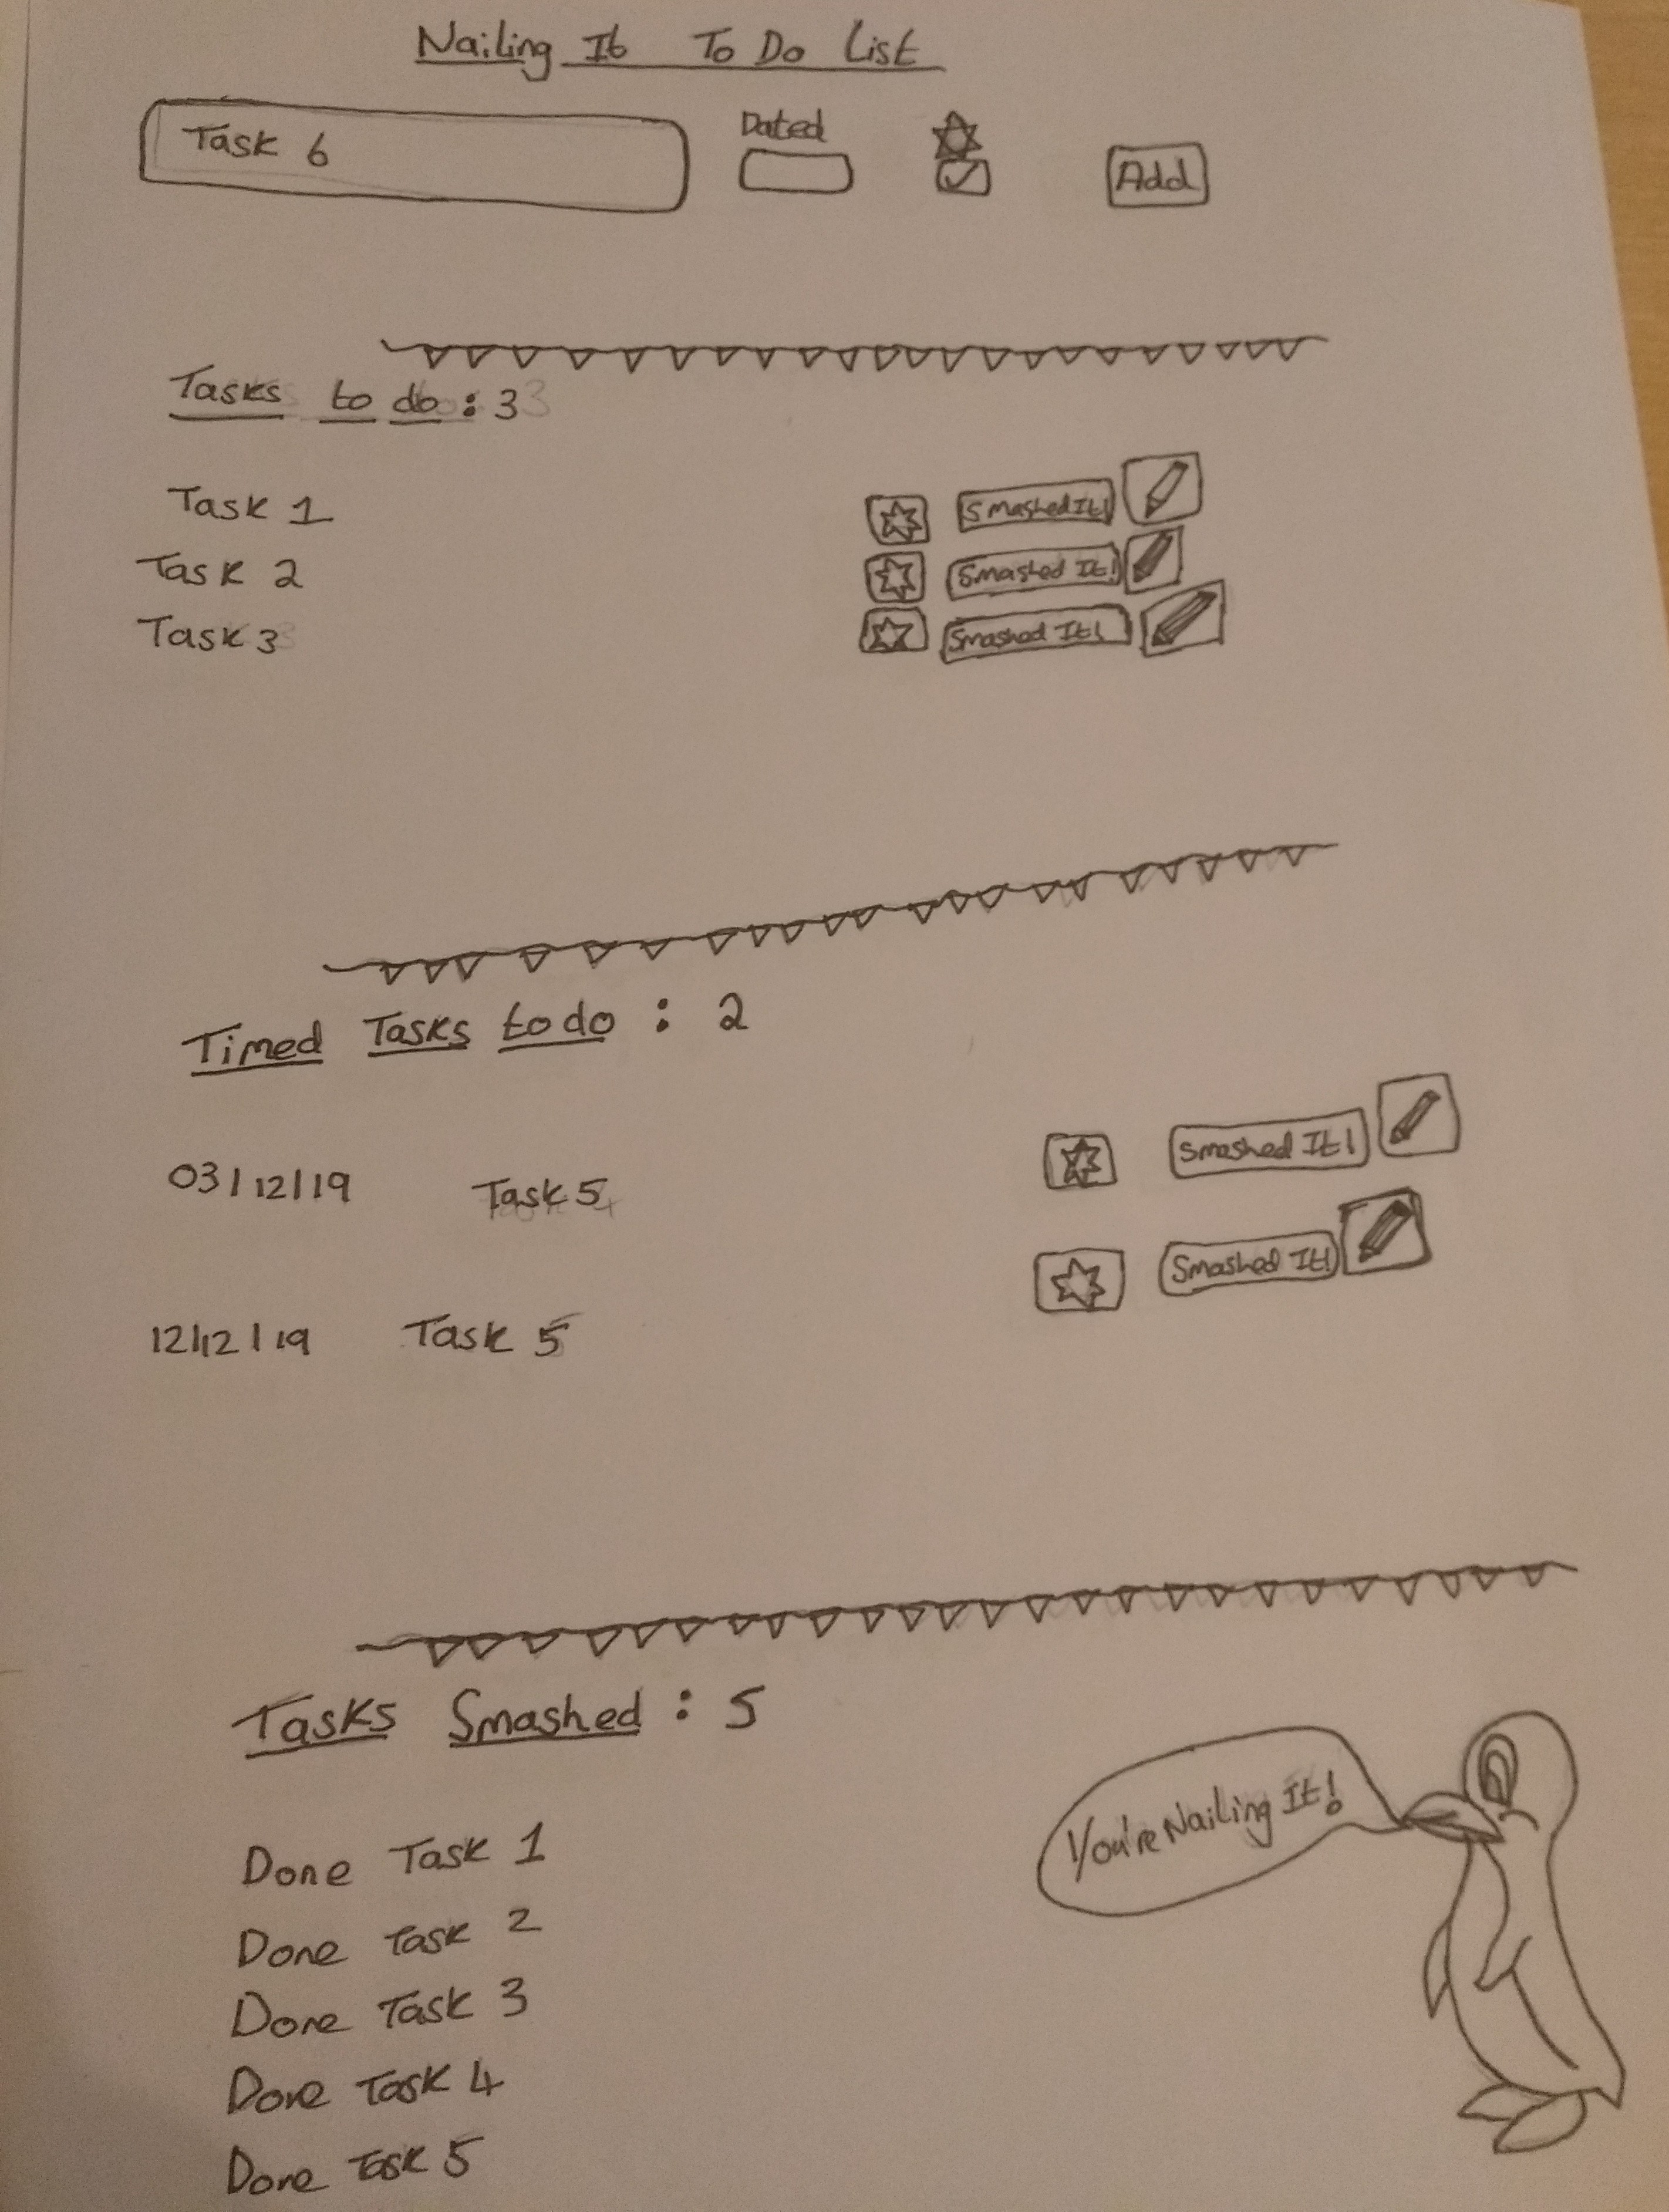 Nailing It To Do List
Task 6
Dated
Add
Tasks to do : 3
Task 1 Smashed It!
Task 2 Smashed It!
Task 3 Smashed It!
Timed Tasks to do : 2
03/12/19 Task 5 Smashed It!
12/12/19 Task 5 Smashed It!
Tasks Smashed : 5
You're Nailing It!
Done Task 1
Done Task 2
Done Task 3
Done Task 4
Done Task 5